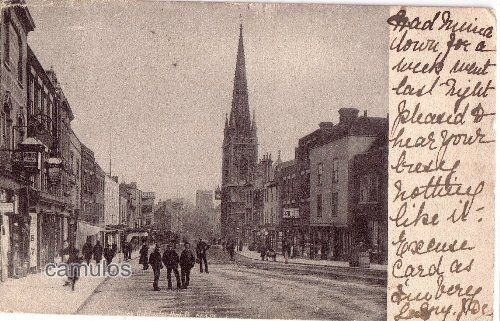 Had Mina
down for a
week went
last night
pleased to
hear your
busy
nothing
like it -
Excuse
Card as
I'm very
camulos